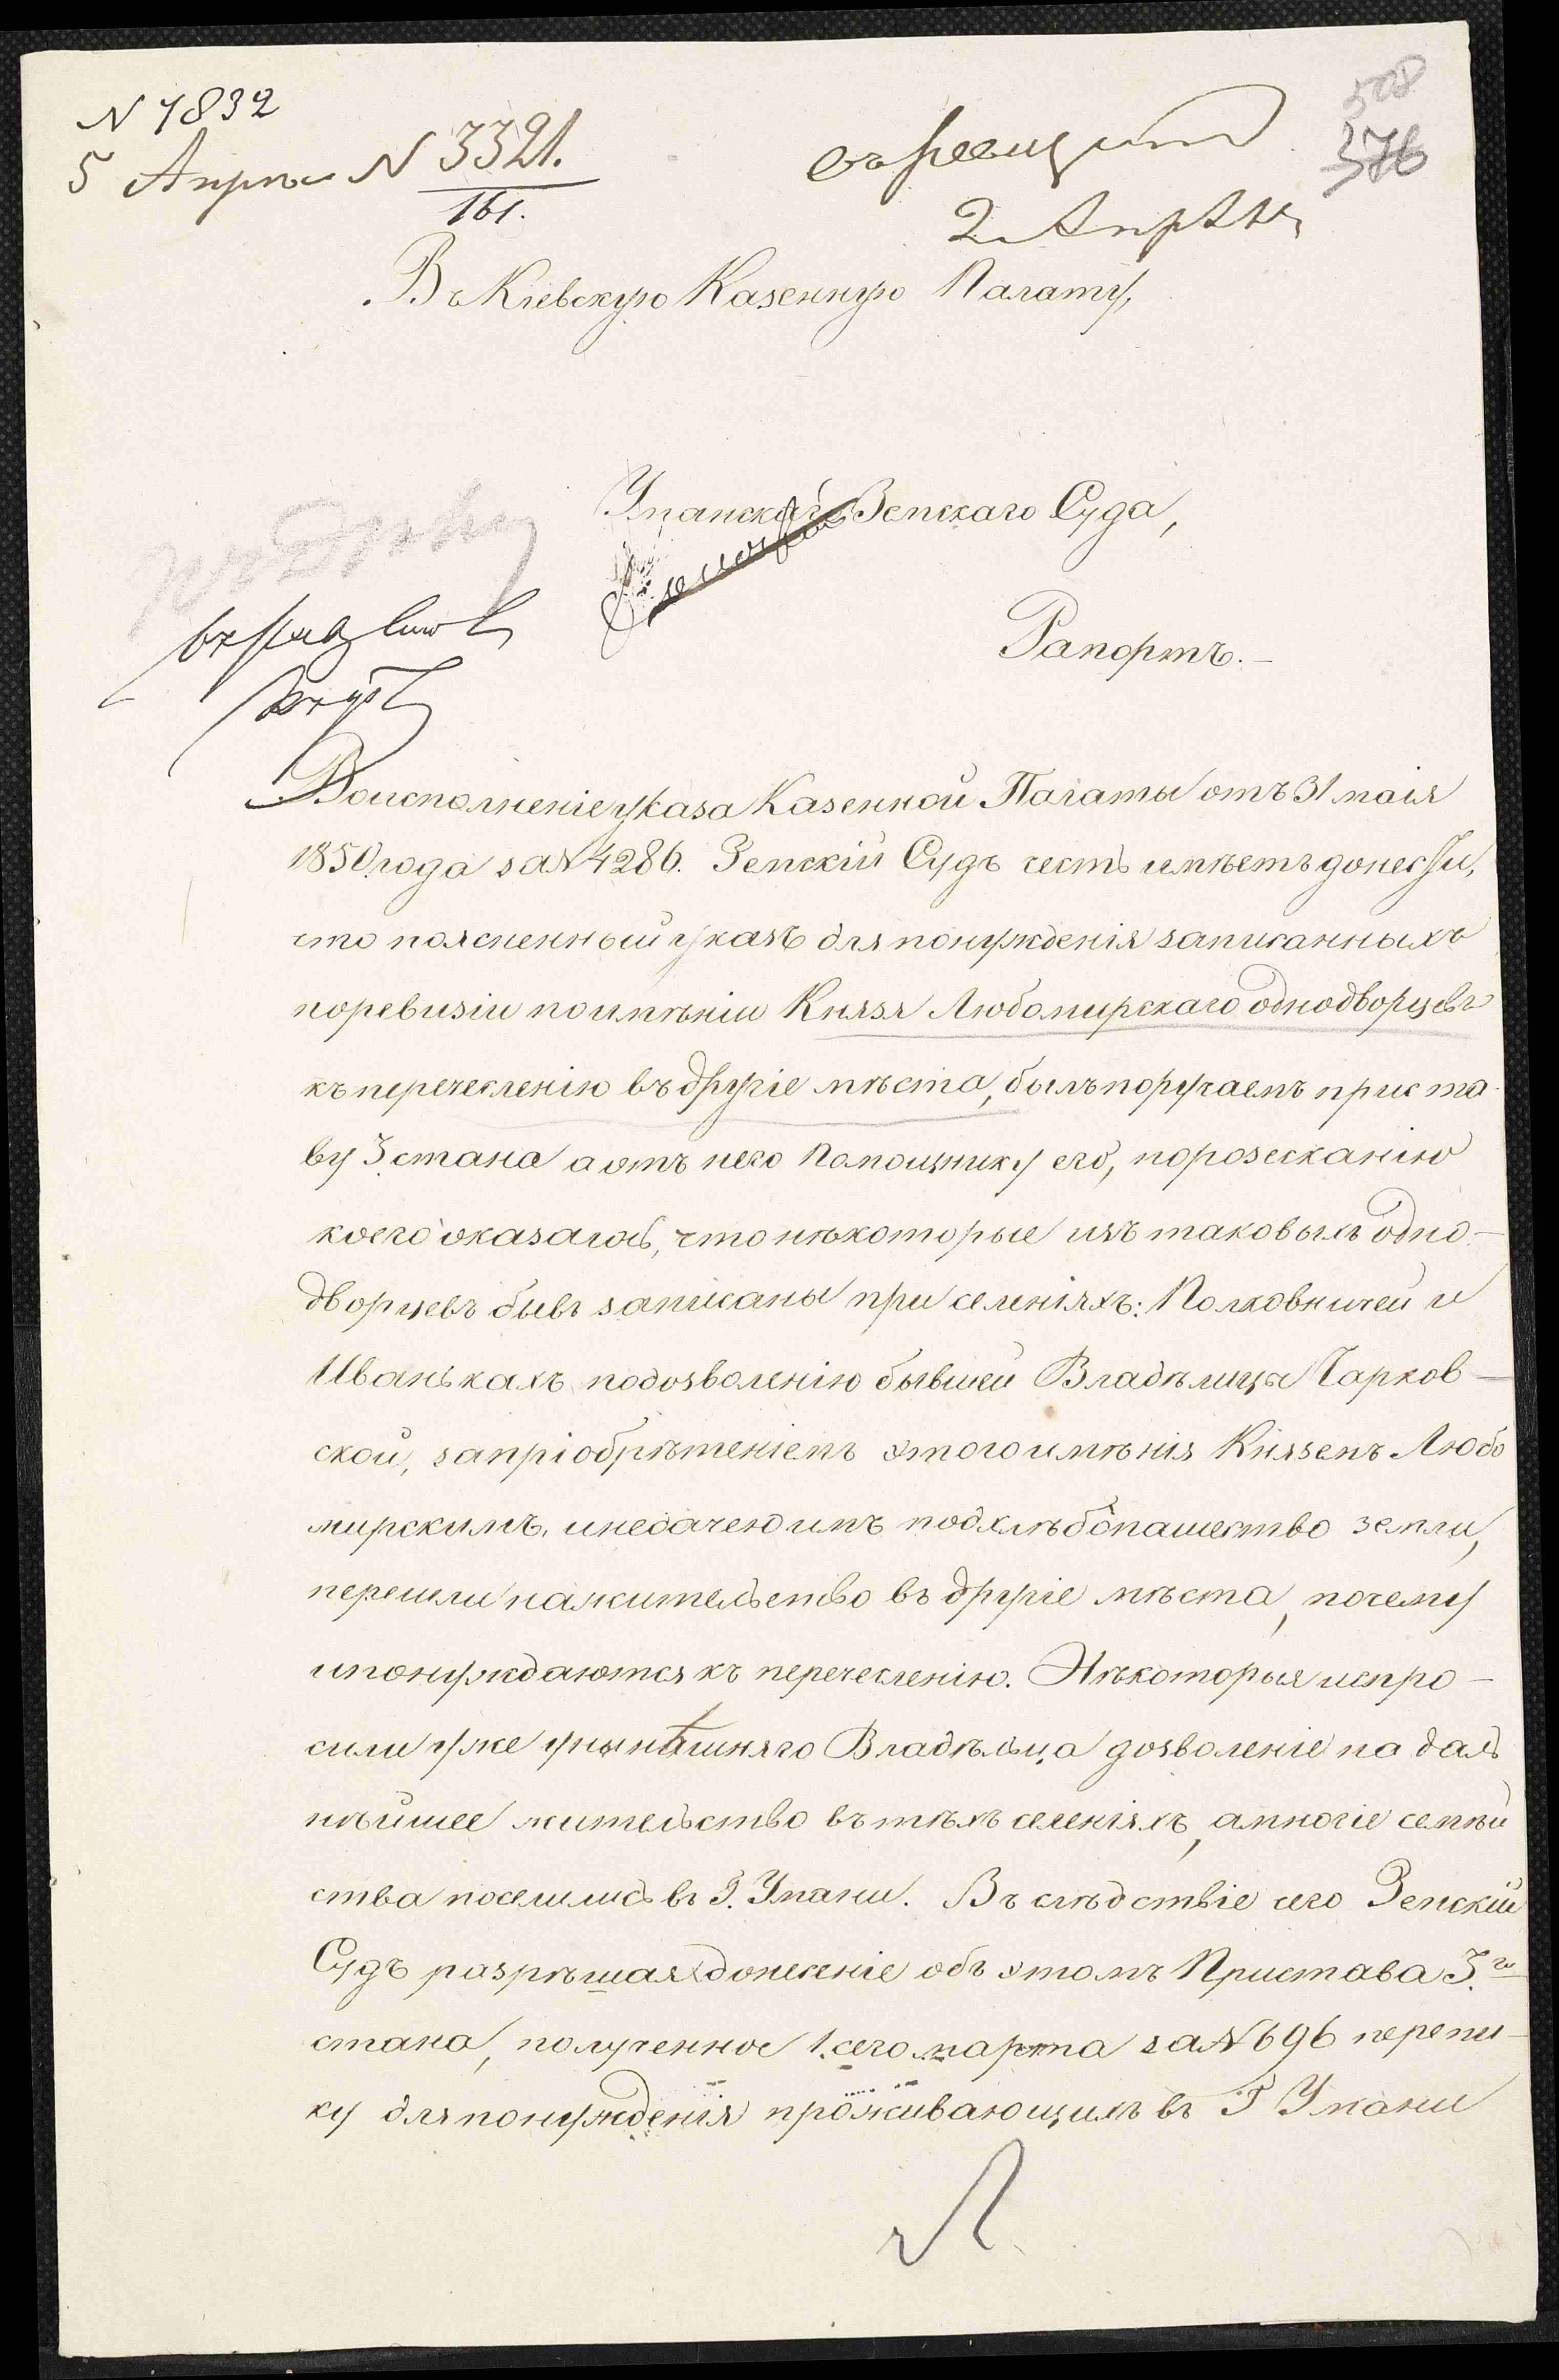 N 7832
5 Апрел N 3321.
161.
508
376
2 Апрѣля
Въ Кіевскую Казенную Палату,
Уманскаго Земскаго Суда,
Рапортъ.-
Воисполненіе указа Казенной Палаты отъ 31 маія
1850 года за N 4286. Земскій Судъ честь имѣетъ донести,
что поясненный указъ для понужденія записанныхъ
поревизіи поимѣнію Князя Любомирскаго однодворцевъ
къ перечисленію въ другіе мѣста, былъ поручаемъ приста
ву 3 стана а отъ него помощнику его, порозысканію
коего оказалось, что нѣкоторые изъ таковыхъ одно-
дворцевъ бывъ записаны при селеніяхъ: Полковничей и
Иванькахъ подозволенію бывшей Владѣлицы Чарков-
ской, запріобрѣтеніемъ этого имѣнія Княземъ Любо
мирскимъ, инедачею имъ подхлѣбопашество земли,
перешли нажительство въ другіе мѣста, почему
ипонуждаются къ перечисленію. Нѣкоторыя испро-
сили уже унынѣшняго Владѣльца дозволеніе на даль
нѣйшее жительство въ тѣхъ селеніяхъ, амногіе семѣй
ства поселились въ Г. Умани. Въ слѣдствіе чего Земскій
Судъ разрѣшая донесеніе объ этомъ Пристава 3.го
стана, полученное 1. сего марта за N 696 перепи-
ку для понужденія проживающихъ въ Г Умани